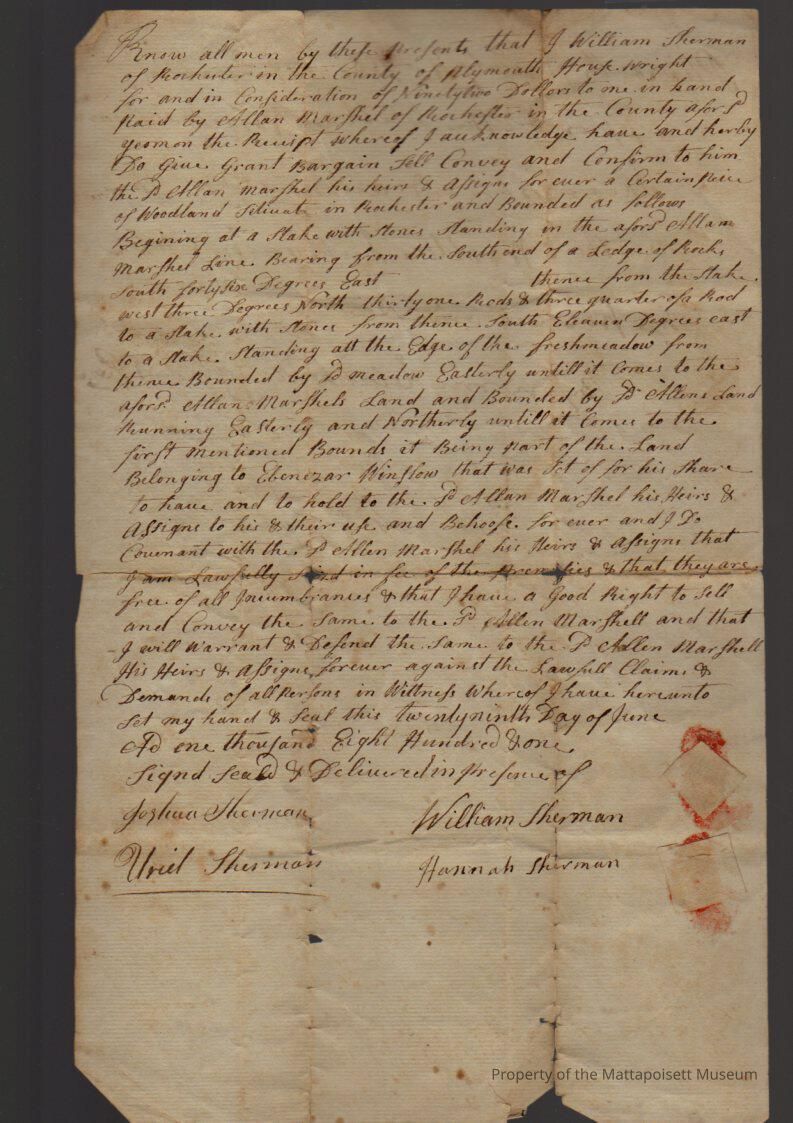 Know all men by these presents that I William Sherman
of Rochester in the County of Plymouth House wright
for and in Consideration of Ninetytwo Dollors to me in hand
Paid by Allan Marshel of Rochester in the County afors.d
yeomon the Receipt whereof I acknowledge have and herby
Do Give Grant Bargain Sell Convey and Confirm to him
the S.d Allan Marshel his heirs & Assigns for ever a Certain Peice
of Woodland Situate in Rochester and Bounded as follows
Begining at a Stake with Stones Standing in the afors.d Allan
Marshel Line Bearing from the South end of a Ledge of Rocks
South fortysix Degrees East thence from the Stake
west three Degrees North thirtyone Rods & three quarter of a Rod
to a Stake with Stones from thence South Eleaven Degrees east
to a Stake Standing att the Edge of the freshmeadow from
thence Bounded by S.d meadow Easterly untill it Comes to the
afors.d Allan Marshels Land and Bounded by S.d Allens Land
Running Easterly and Northerly untill it Comes to the
first mentioned Bounds it Being Part of the Land
Belonging to Ebenezar Winslow that was Set of for his Share
to have and to hold to the S.d Allan Marshel his Heirs &
Assigns to his & their use and Behoofe for ever and I Do
Covenant with the S.d Allen Marshel his Heirs & Assigns that
I am Lawfully in fee of the Premisies & that they are
free of all Incumbrances & that I have a Good Right to Sell
and Convey the Same to the S.d Allen Marshell and that
I will Warrant & Defend the Same to the S.d Allen Marshell
His Heirs & Assigns forever against the Lawfull Claims &
Demands of all Persons in Wittness Whereof I have hereunto
Set my hand & Seal this twentyninth Day of June
AD one thousand Eight Hundred & one
Signd Seald & Delivered in Presence of
Joshua Sherman William Sherman
Uriel Sherman Hannah Sherman
Property of the Mattapoisett Museum